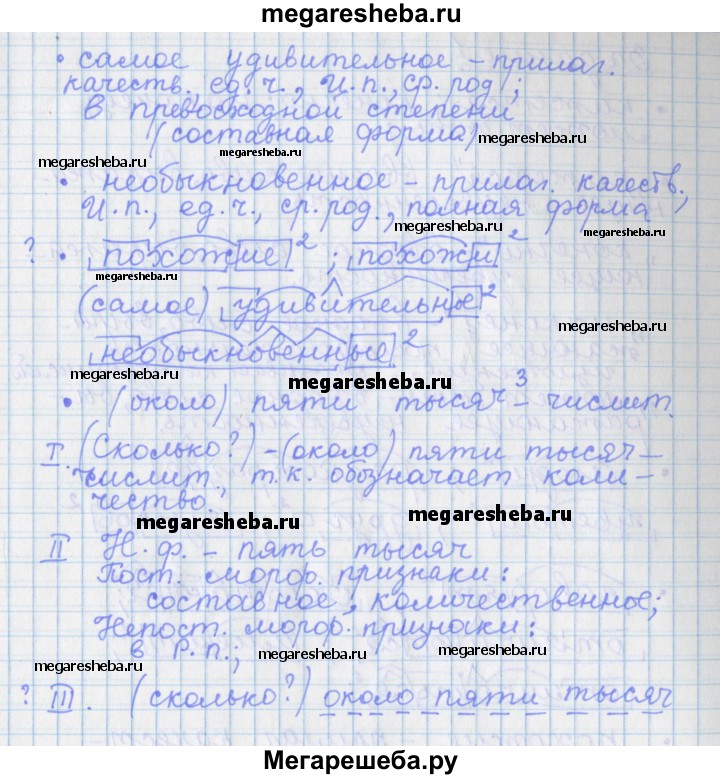 megaresheba.ru
• самое удивительное - прилаг.
качеств., ед. ч., И. п., ср. род;
в превосходной степени
(составная форма) megaresheba.ru
megaresheba.ru megaresheba.ru
• необыкновенное - прилаг. качеств.,
И. п., ед. ч., ср. род., полная форма
megaresheba.ru megaresheba.ru
? • похожие 2 ; похожи 2
megaresheba.ru megaresheba.ru
(самое) удивительные 2
megaresheba.ru
необыкновенные 2
megaresheba.ru megaresheba.ru
• (около) пяти тысяч 3 - числит.
I. (Сколько?) - (около) пяти тысяч -
числит., т. к. обозначает коли-
чество.
megaresheba.ru megaresheba.ru
II Н. ф. - пять тысяч
Пост. морф. признаки:
составное, количественное;
Непост. морф. признаки:
в Р. п.;
megaresheba.ru megaresheba.ru megaresheba.ru
? III. (сколько?) около пяти тысяч
Мегарешеба.ру